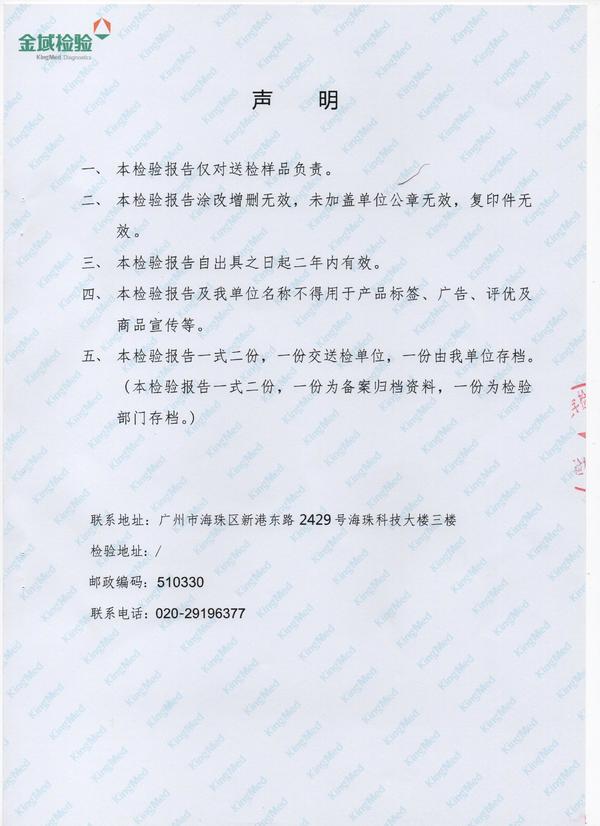 金域检验
KingMed Diagnostics
声 明
一、 本检验报告仅对送检样品负责。
二、 本检验报告涂改增删无效，未加盖单位公章无效，复印件无
效。
三、 本检验报告自出具之日起二年内有效。
四、 本检验报告及我单位名称不得用于产品标签、广告、评优及
商品宣传等。
五、 本检验报告一式二份，一份交送检单位，一份由我单位存档。
（本检验报告一式二份，一份为备案归档资料，一份为检验
部门存档。）
联系地址：广州市海珠区新港东路 2429 号海珠科技大楼三楼
检验地址：/
邮政编码：510330
联系电话：020-29196377